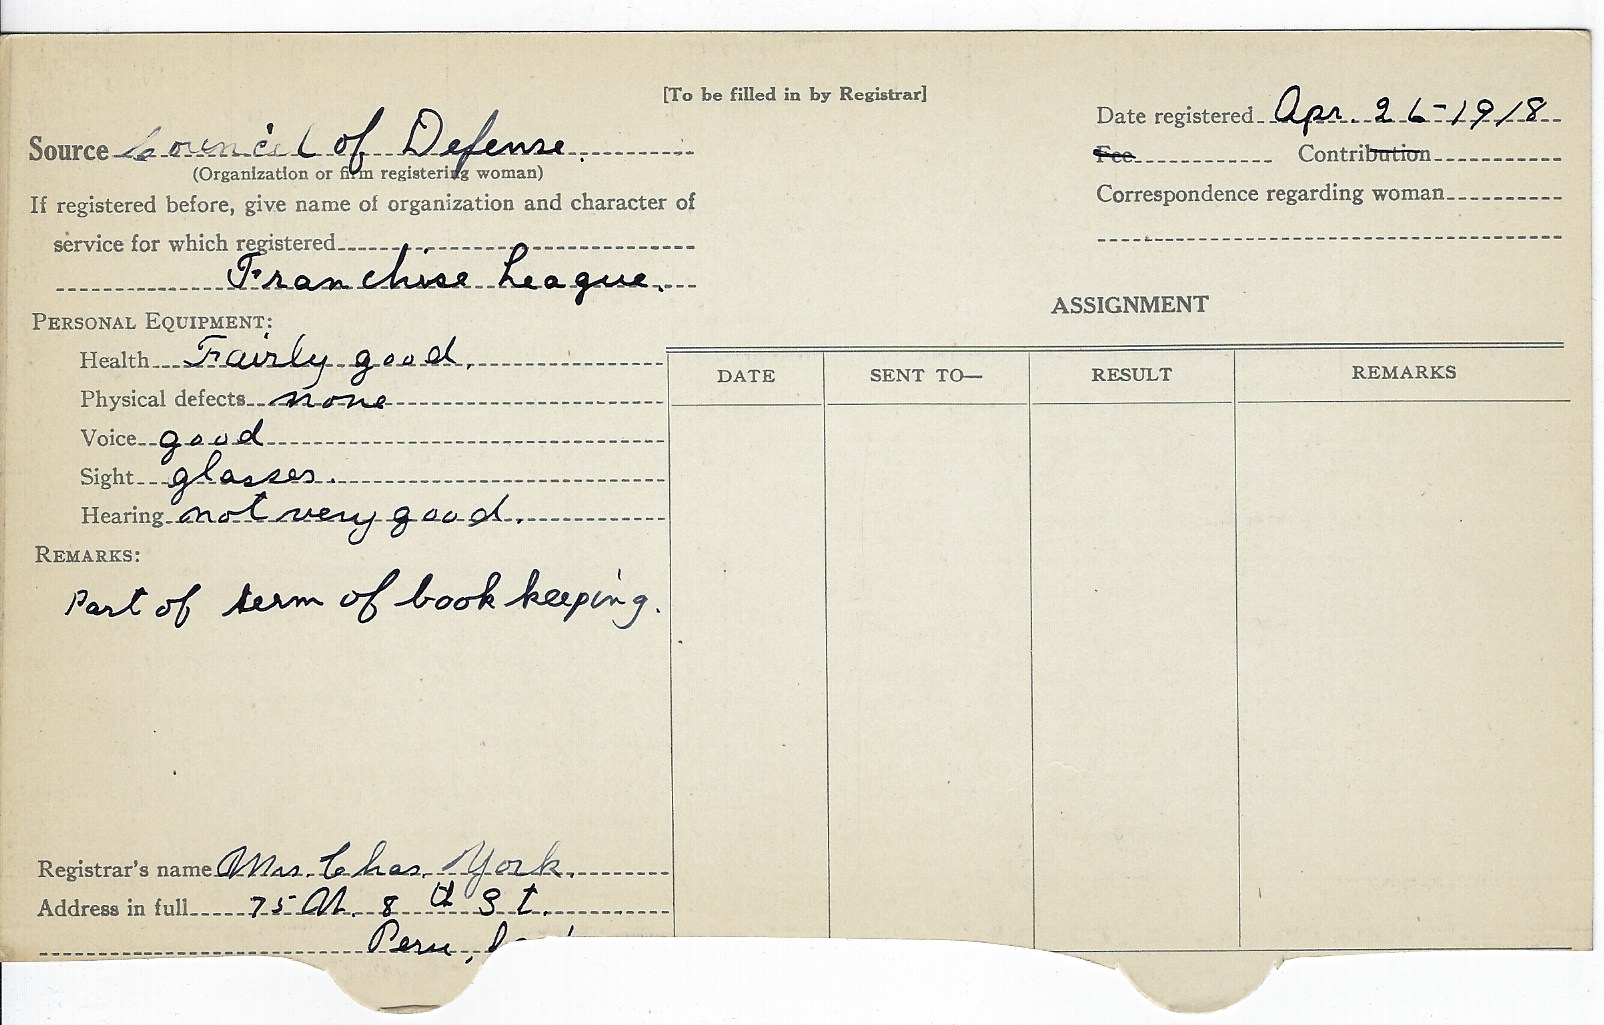 [To be filled in by Registrar]
Date registered Apr. 26-1918
Source Council of Defense.
Fee Contribution
(Organization or firm registering woman)
Correspondence regarding woman
If registered before, give name of organization and character of
service for which registered
Franchise League.
ASSIGNMENT
PERSONAL EQUIPMENT:
Health Fairly good.
DATE SENT TO— RESULT REMARKS
Physical defects none
Voice good
Sight glasses.
Hearing not very good.
REMARKS:
Part of term of book keeping.
Registrar's name Mrs. Chas. York.
Address in full 75 N. 8th St.
Peru,